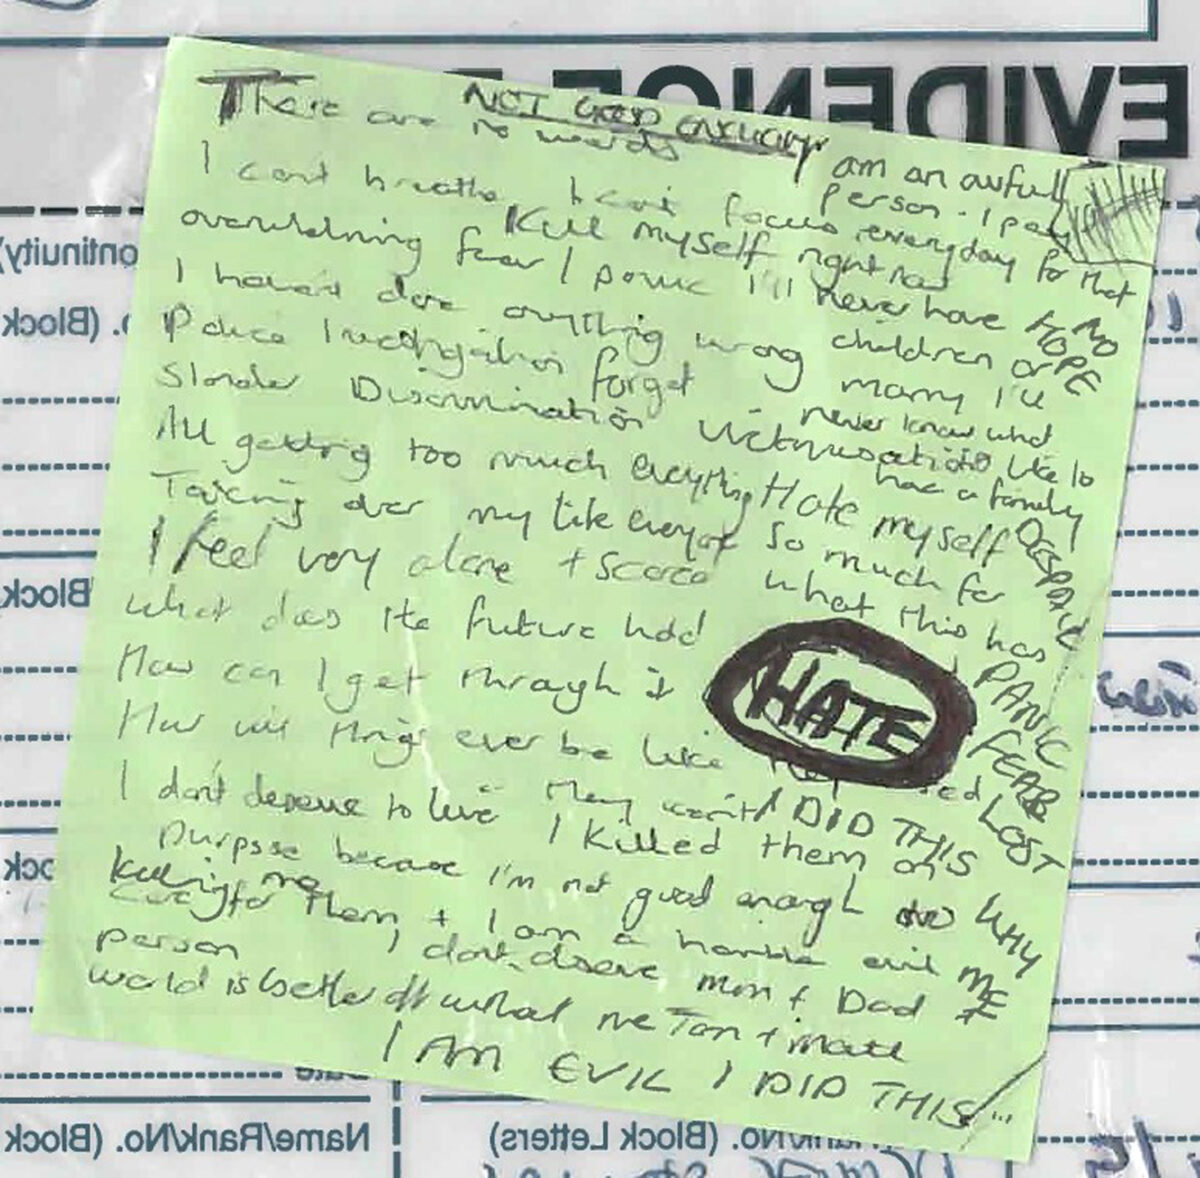 EVIDENCE
NOT GOOD ENOUGH
There are no words
I am an awful
person. I pay
everyday for that
I cant breathe I cant focus
Kill myself right now
overwhelming fear / panic I'll never have
children or
marry I'll
never know what
its like to
have a family
NO
HOPE
I haven't done anything wrong
Police Investigation forget
Slander Discrimination Victimisation
All getting too much everything
Taking over my life everyday
Hate myself
so much for
what this has
I feel very alone + scared
what does the future hold
How can I get through it
How will things ever be like they
HATE
DESPAIR
PANIC
FEAR
LOST
WHY
ME
I dont deserve to live They won't
I DID THIS
I killed them on
purpose because I'm not good enough to
care for them + I am a horrible evil
person
killing me
I dont deserve mum + Dad
world is better off without me Tom + matt
I AM EVIL I DID THIS...
ontinuity)
o. (Block
Block
ock
Date
Name/Rank/No. (Block
ank/No. (Block Letters)